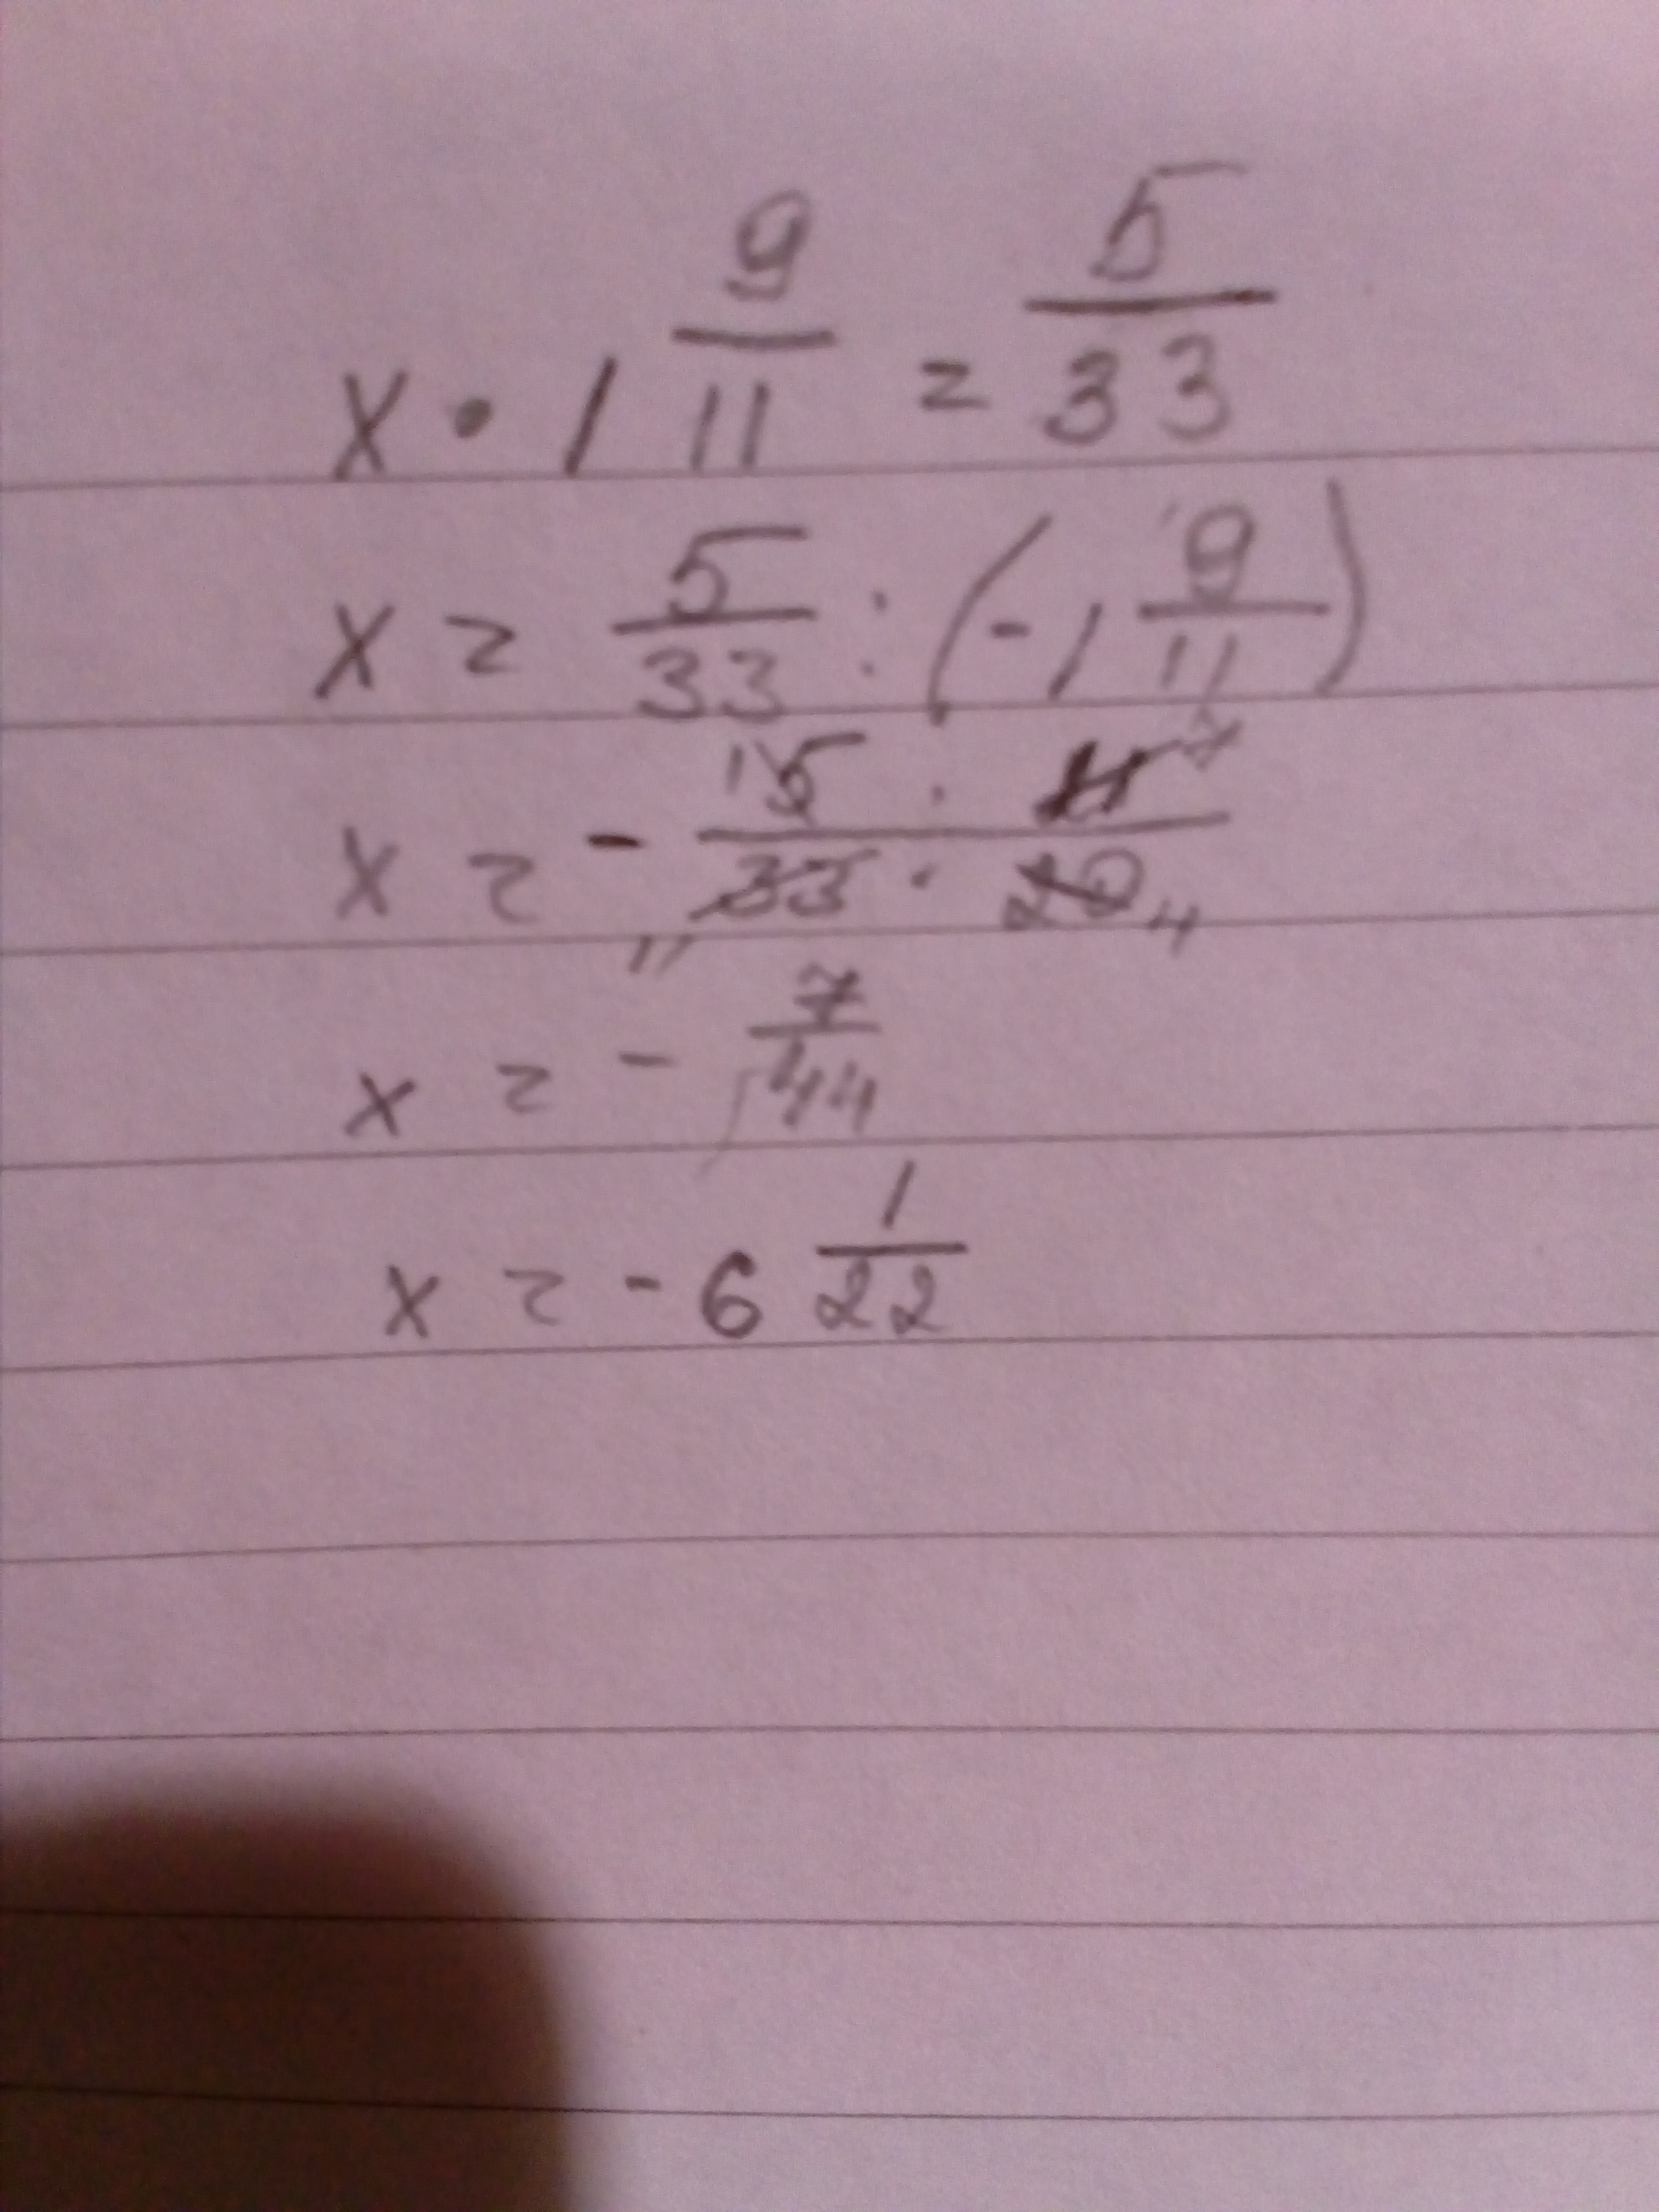 x • 1 9/11 = 5/33
x = 5/33 : (-1 9/11)
x = - 15 · 11 7 / 11 33 · 20 4
x = - 7/44
x = - 6 1/22